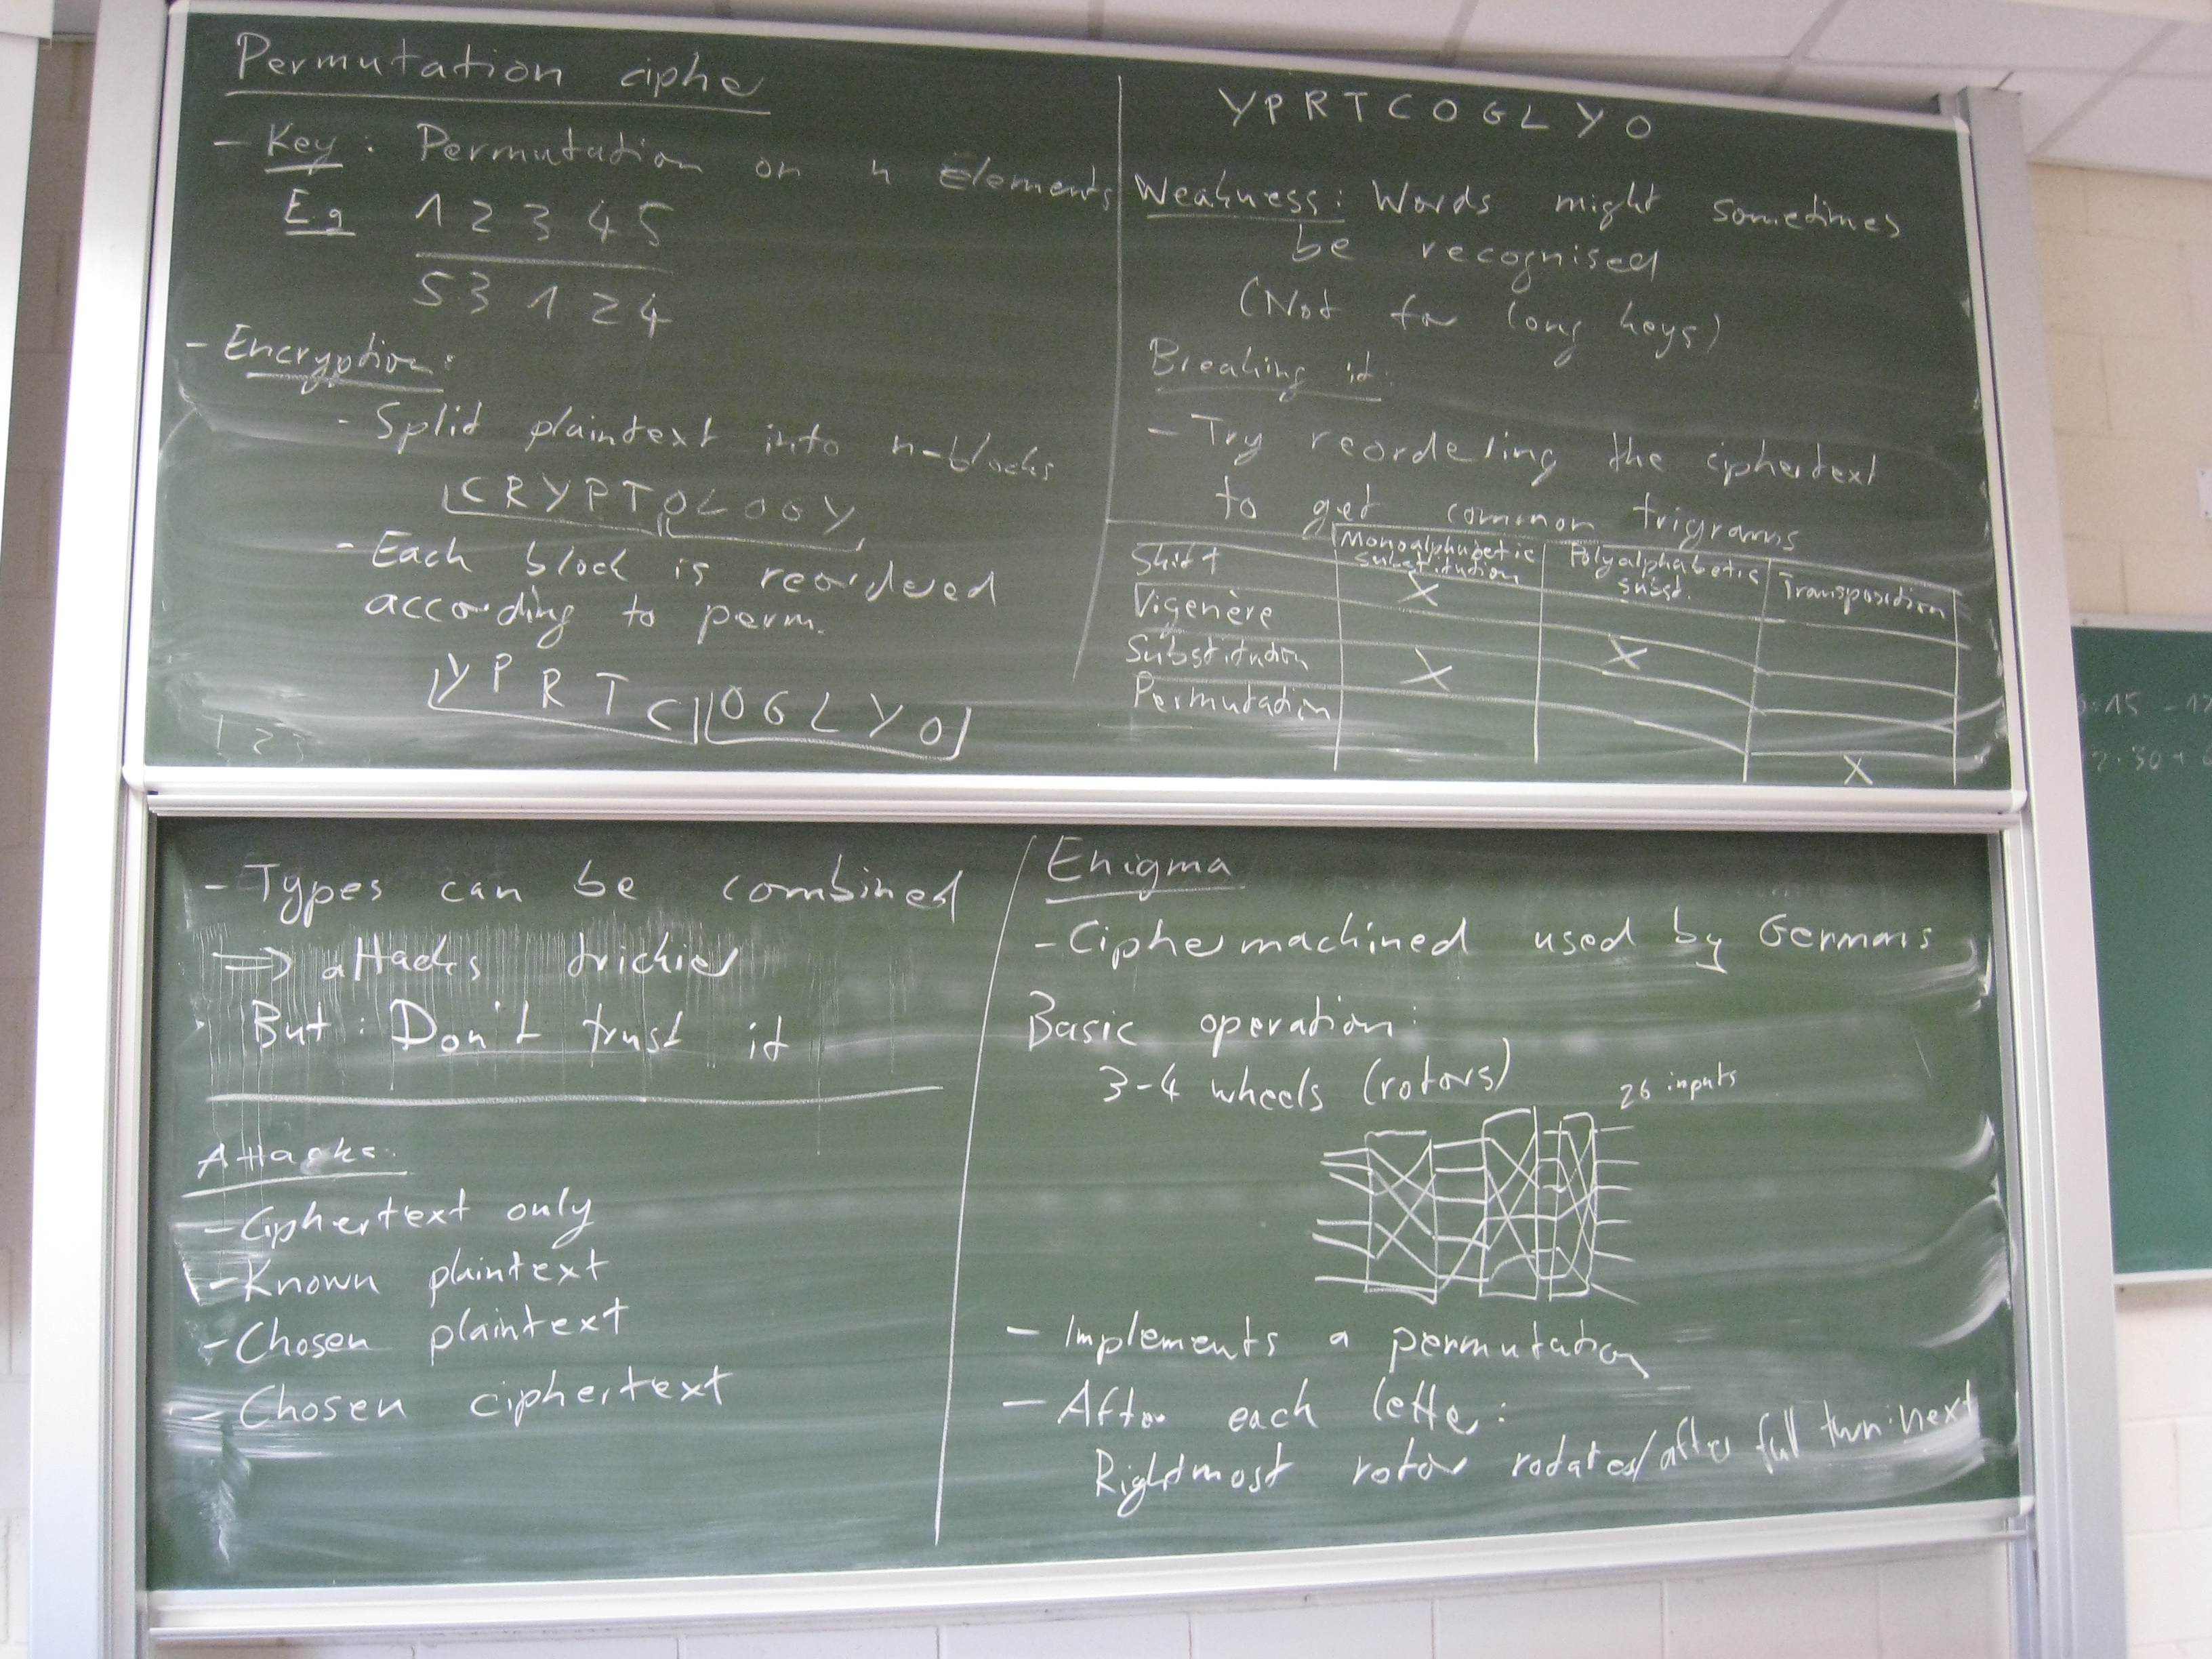 Permutation ciphe
- Key: Permutation on n Elements
Eg 1 2 3 4 5
5 3 1 2 4
- Encryption:
- Split plaintext into n-blocks
CRYPTOLOGY
- Each block is reordered
according to perm.
YPRTC OGLYO
1 2 3
YPRTCOGLYO
Weakness: Words might sometimes
be recognised
(Not for long keys)
Breaking it:
- Try reordering the ciphertext
to get common trigrams
Monoalphabetic substitution Polyalphabetic subst. Transposition
Shift X
Vigenère X
Substitution X
Permutation X
- Types can be combined
=> attacks trickier
But: Don't trust it
Attacks:
- Ciphertext only
- Known plaintext
- Chosen plaintext
- Chosen ciphertext
Enigma
- Ciphermachined used by Germans
Basic operation:
3-4 wheels (rotors)
26 inputs
- Implements a permutation
- After each letter:
Rightmost rotor rotates/after full turn:next
:15 - 1
2.30 +